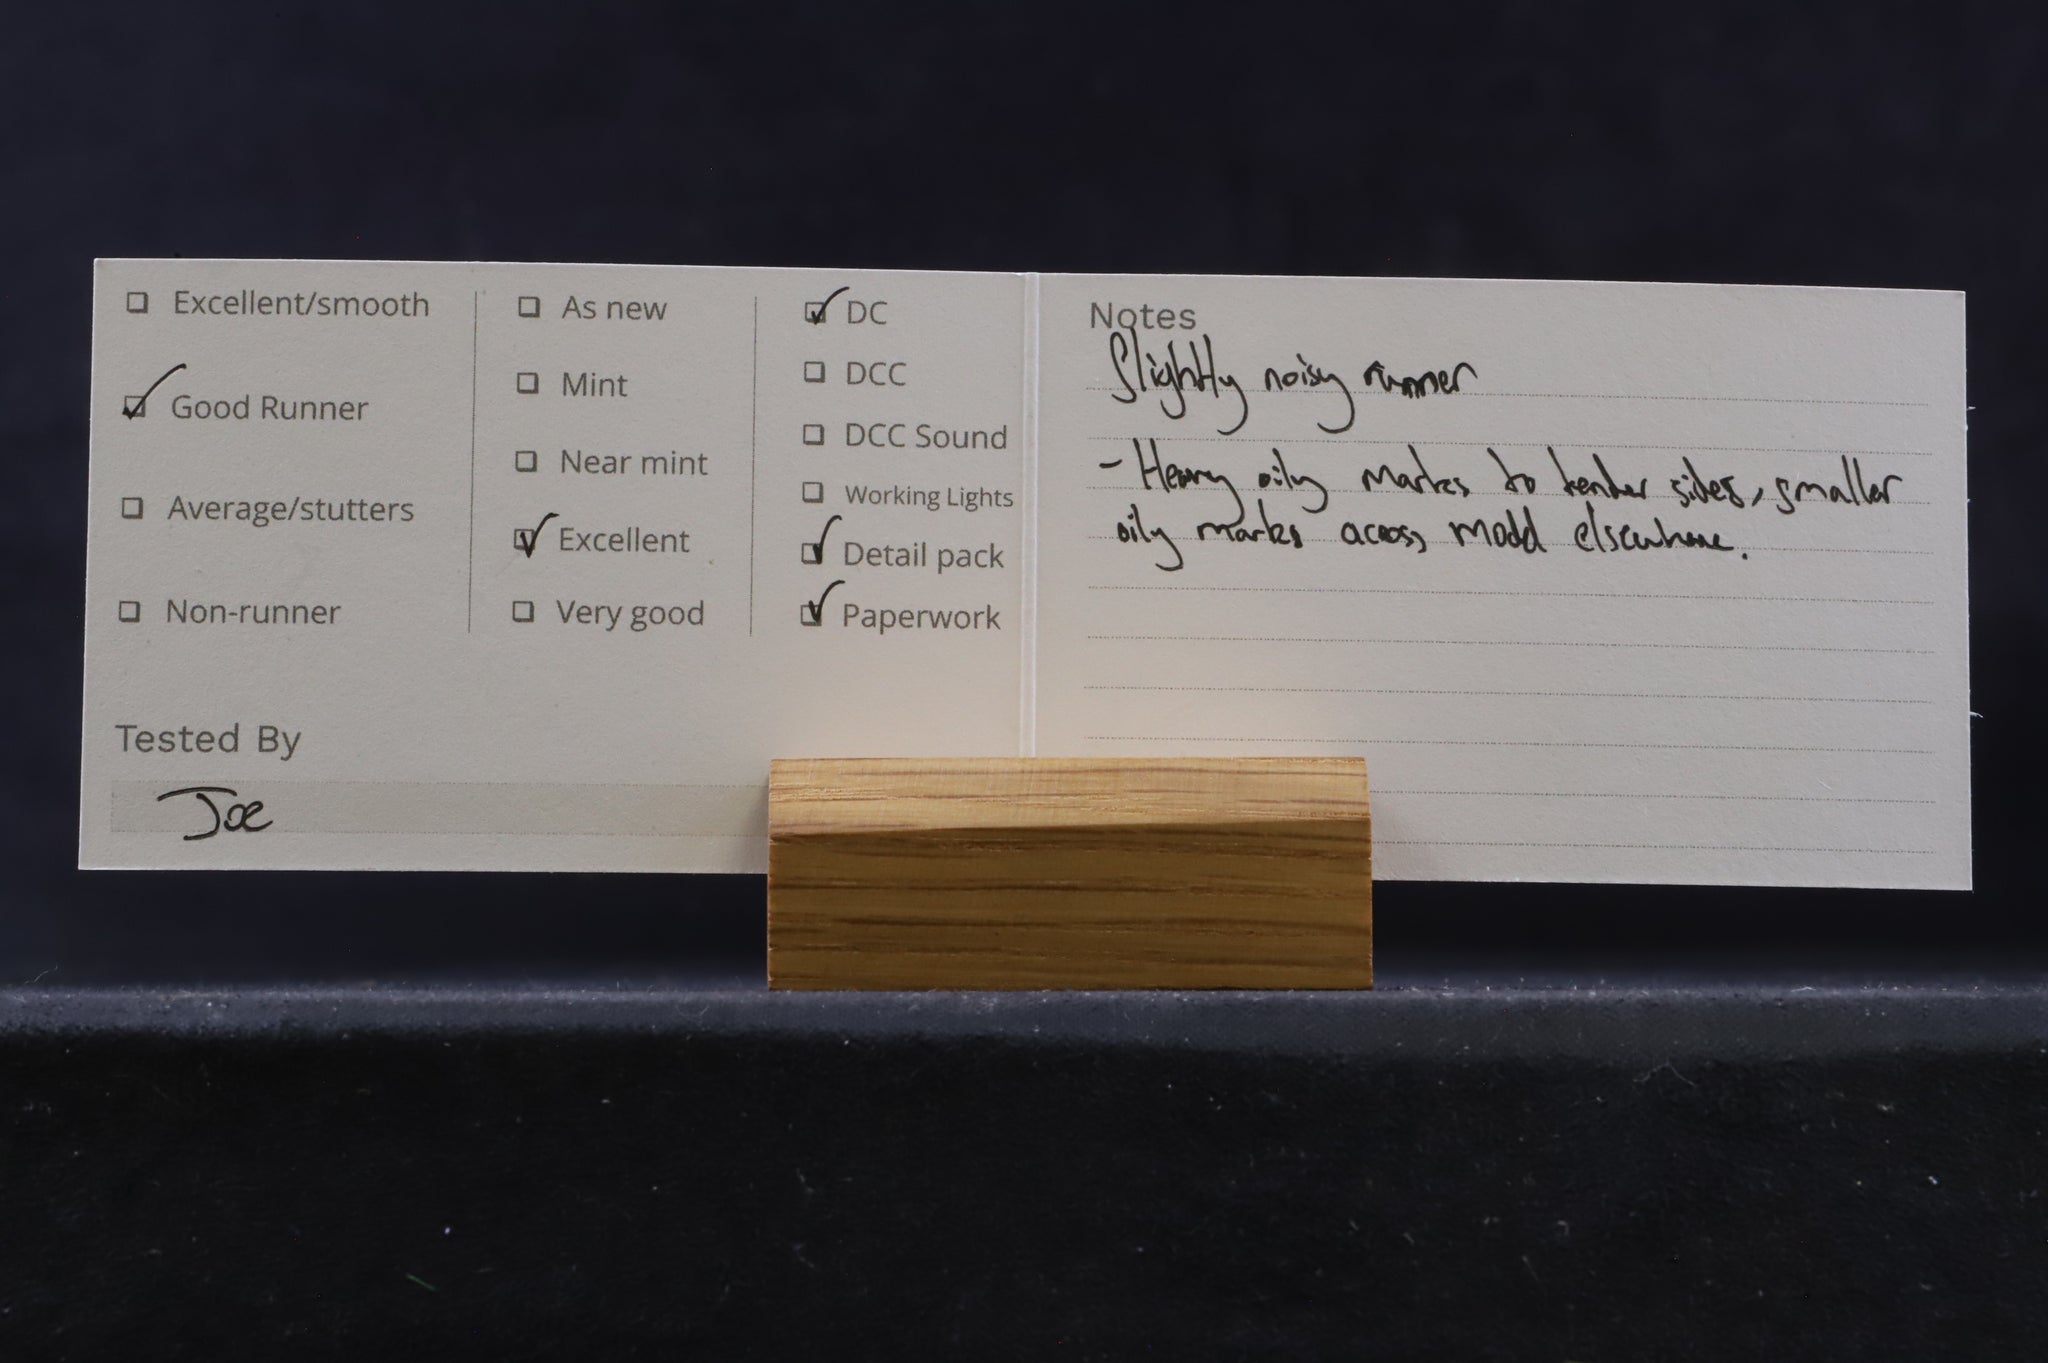 Excellent/smooth
Good Runner
Average/stutters
Non-runner
As new
Mint
Near mint
Excellent
Very good
DC
DCC
DCC Sound
Working Lights
Detail pack
Paperwork
Tested By
Joe
Notes
Slightly noisy runner
- Heavy oily marks to tender sides, smaller
oily marks across model elsewhere.